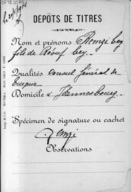 DEPÔTS DE TITRES
Nom et prénoms Remzi bey
fils de Réouf bey.
Qualités Consul Général de
Turquie
Domicile à
Spécimen de signature ou cachet
Remzi
Observations